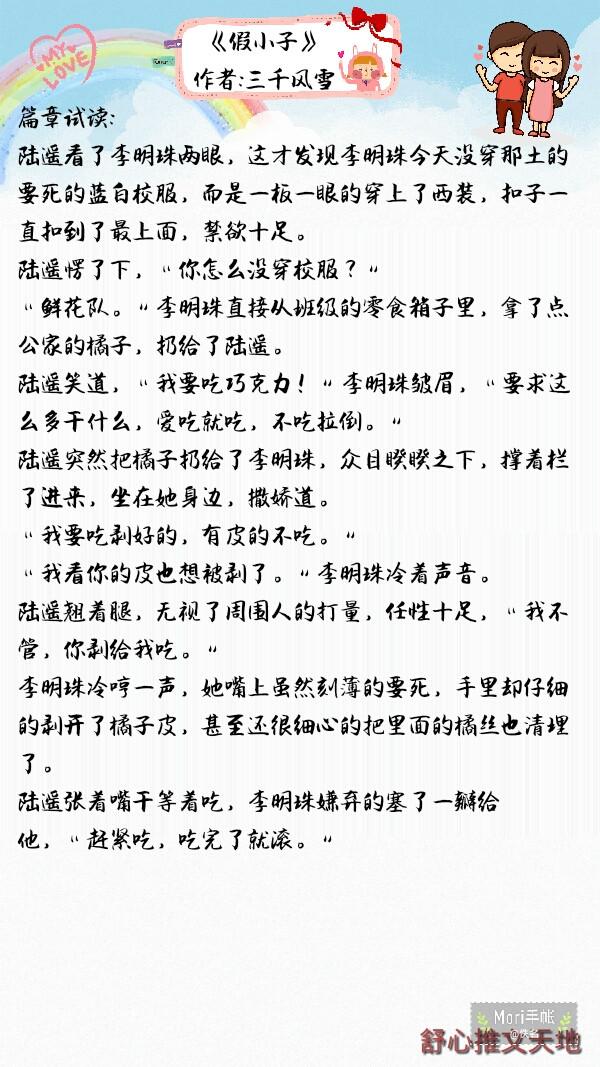 MY
LOVE
《假小子》
作者:三千风雪
篇章试读:
陆遥看了李明珠两眼，这才发现李明珠今天没穿那土的
要死的蓝白校服，而是一板一眼的穿上了西装，扣子一
直扣到了最上面，禁欲十足。
陆遥愣了下，“你怎么没穿校服？”
“鲜花队。”李明珠直接从班级的零食箱子里，拿了点
公家的橘子，扔给了陆遥。
陆遥笑道，“我要吃巧克力！”李明珠皱眉，“要求这
么多干什么，爱吃就吃，不吃拉倒。”
陆遥突然把橘子扔给了李明珠，众目睽睽之下，撑着栏
了进来，坐在她身边，撒娇道。
“我要吃剥好的，有皮的不吃。”
“我看你的皮也想被剥了。”李明珠冷着声音。
陆遥翘着腿，无视了周围人的打量，任性十足，“我不
管，你剥给我吃。”
李明珠冷哼一声，她嘴上虽然刻薄的要死，手里却仔细
的剥开了橘子皮，甚至还很细心的把里面的橘丝也清理
了。
陆遥张着嘴干等着吃，李明珠嫌弃的塞了一瓣给
他，“赶紧吃，吃完了就滚。”
Mori手帐
舒心推文天地